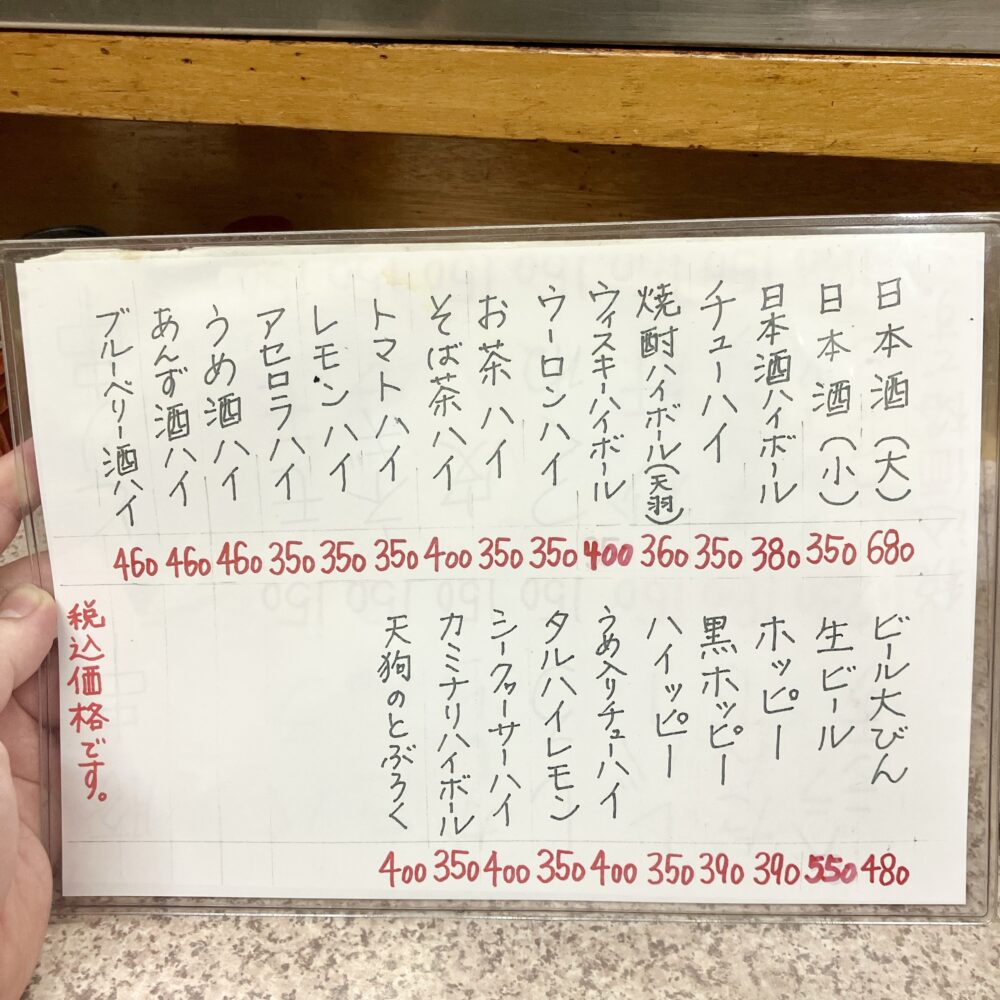 日本酒(大) 680
日本酒(小) 350
日本酒ハイボール 380
チューハイ 350
焼酎ハイボール(天羽) 360
ウィスキーハイボール 400
ウーロンハイ 350
お茶ハイ 350
そば茶ハイ 400
トマトハイ 350
レモンハイ 350
アセロラハイ 350
うめ酒ハイ 460
あんず酒ハイ 460
ブルーベリー酒ハイ 460
ビール大びん 480
生ビール 550
ホッピー 390
黒ホッピー 390
ハイッピー 350
うめ入りチューハイ 400
タルハイレモン 350
シークヮーサーハイ 400
カミナリハイボール 350
天狗のとぶろく 400
税込価格です。